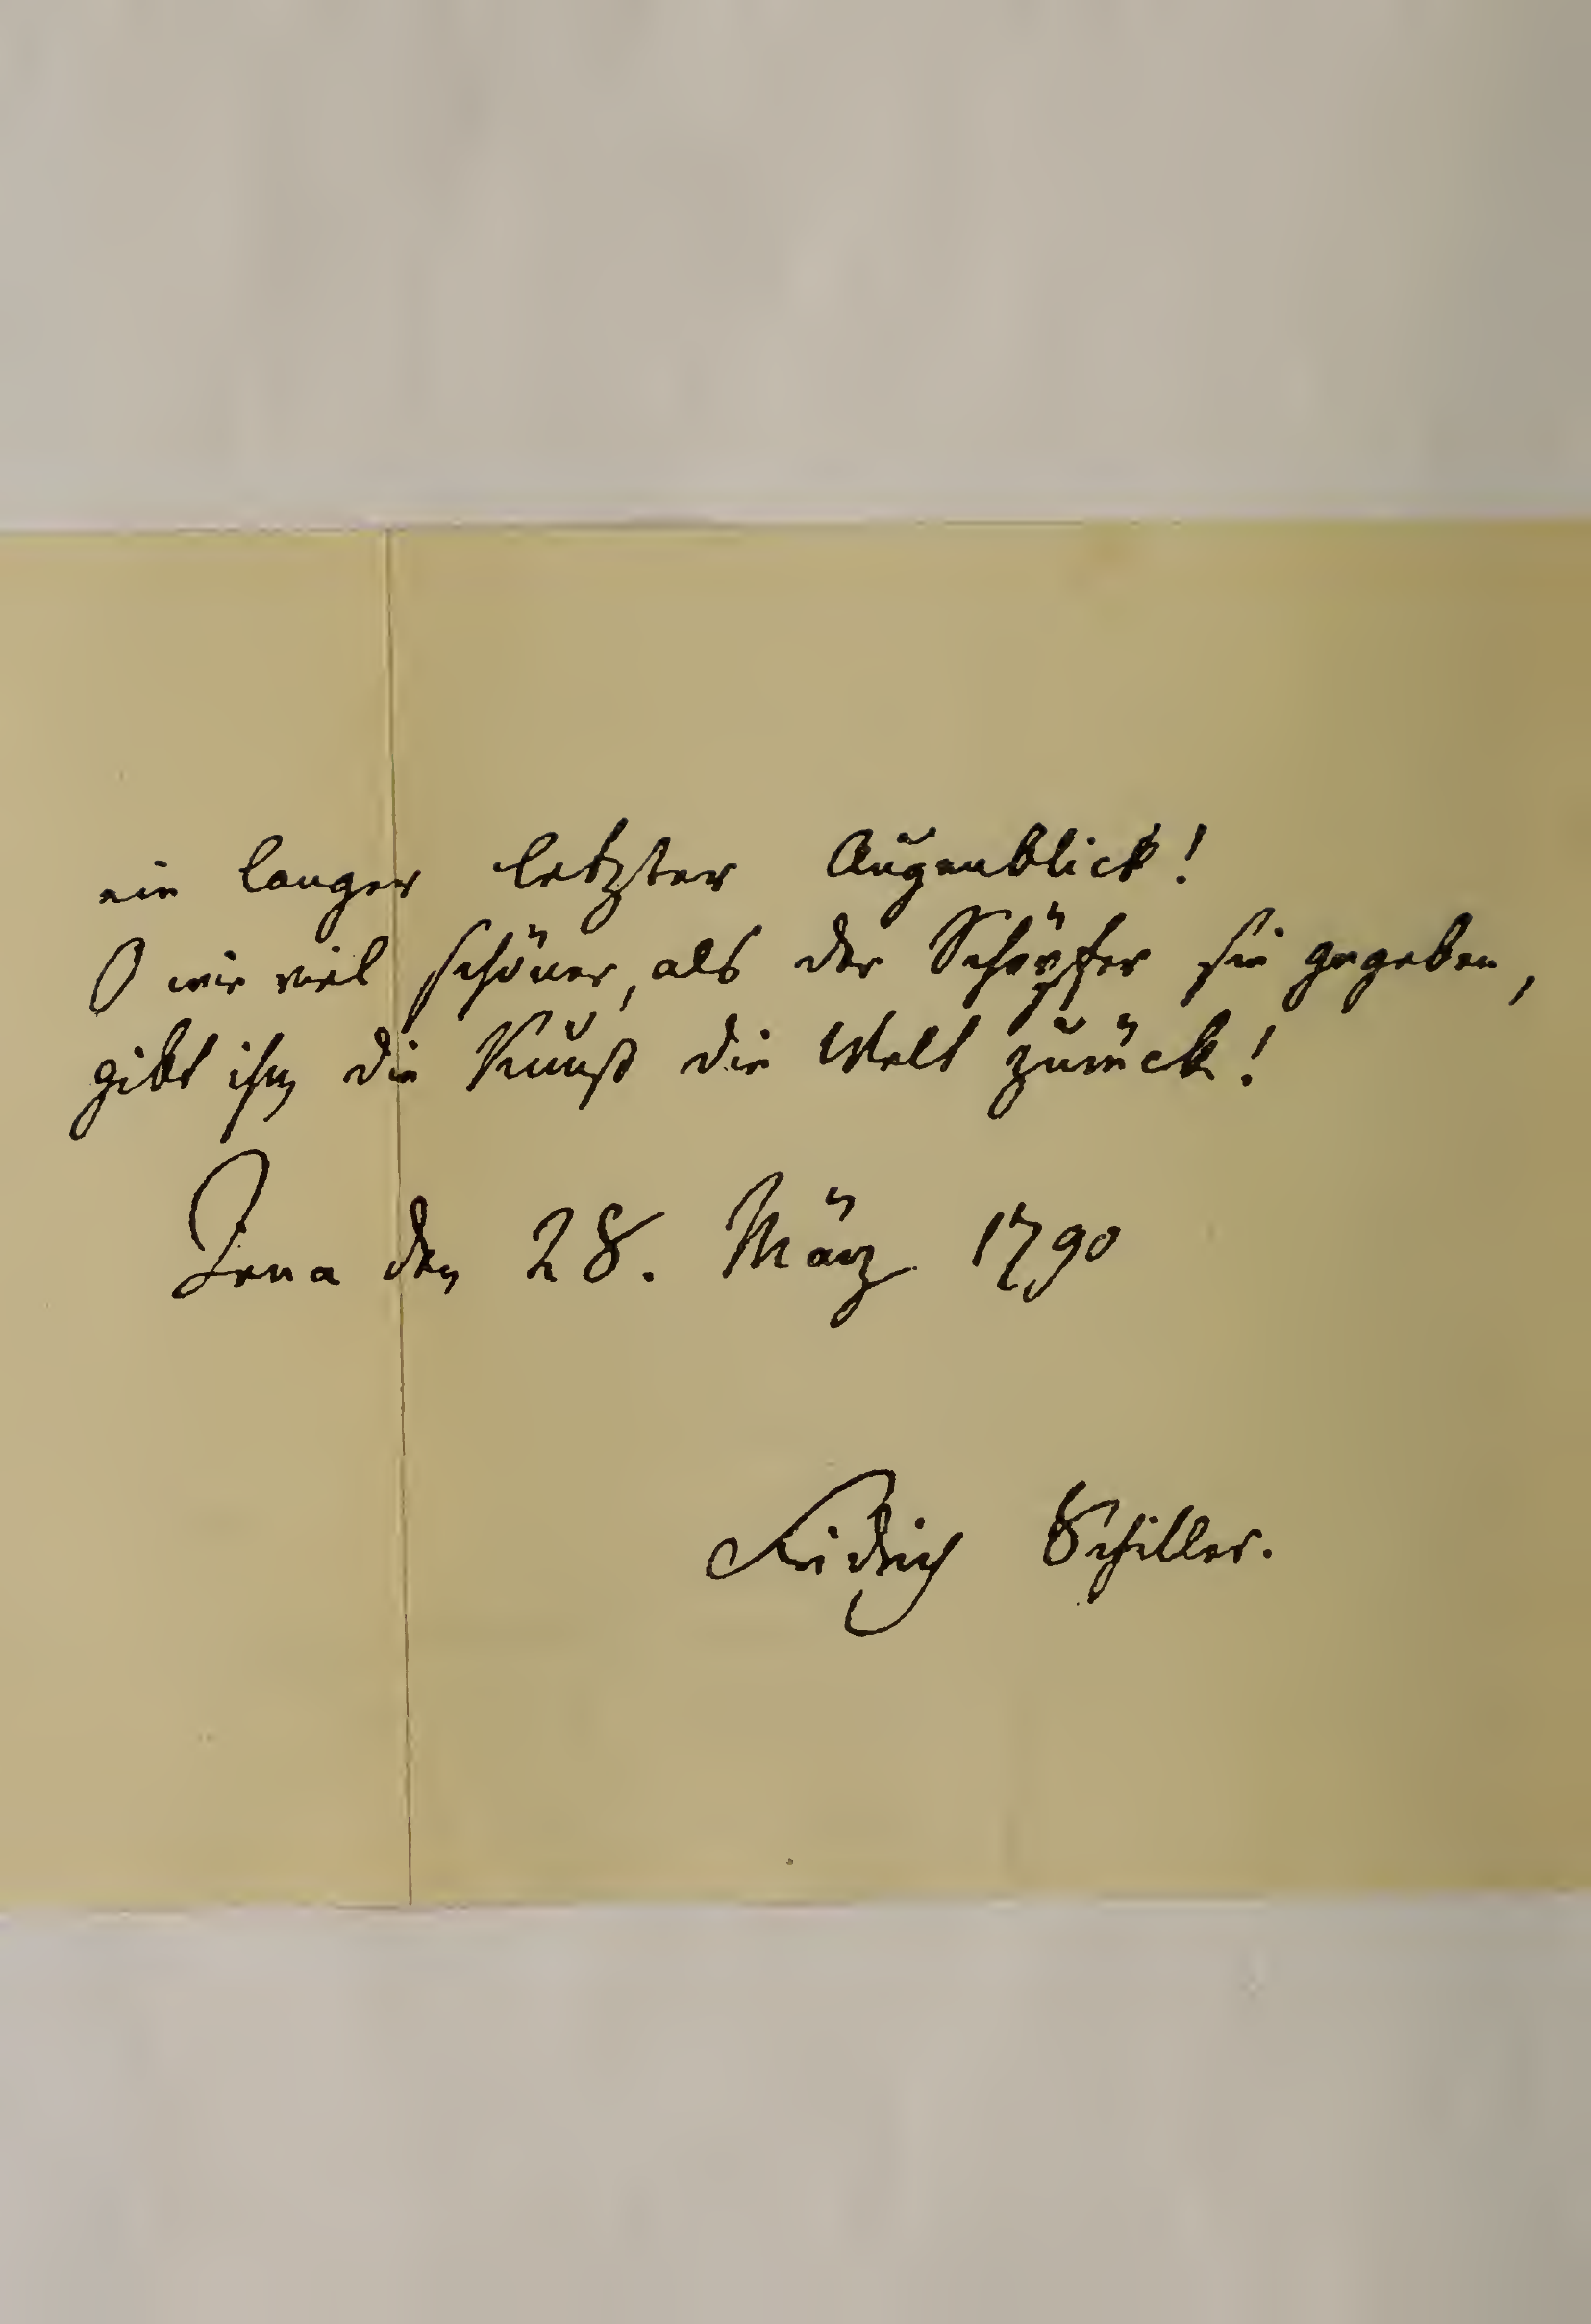 ein langer letzter Augenblick!
O wie viel schöner, als der Schöpfer sie gegeben,
gibt ihm die Kunst die Welt zurück!
Jena den 28. März 1790
Fridrich Schiller.